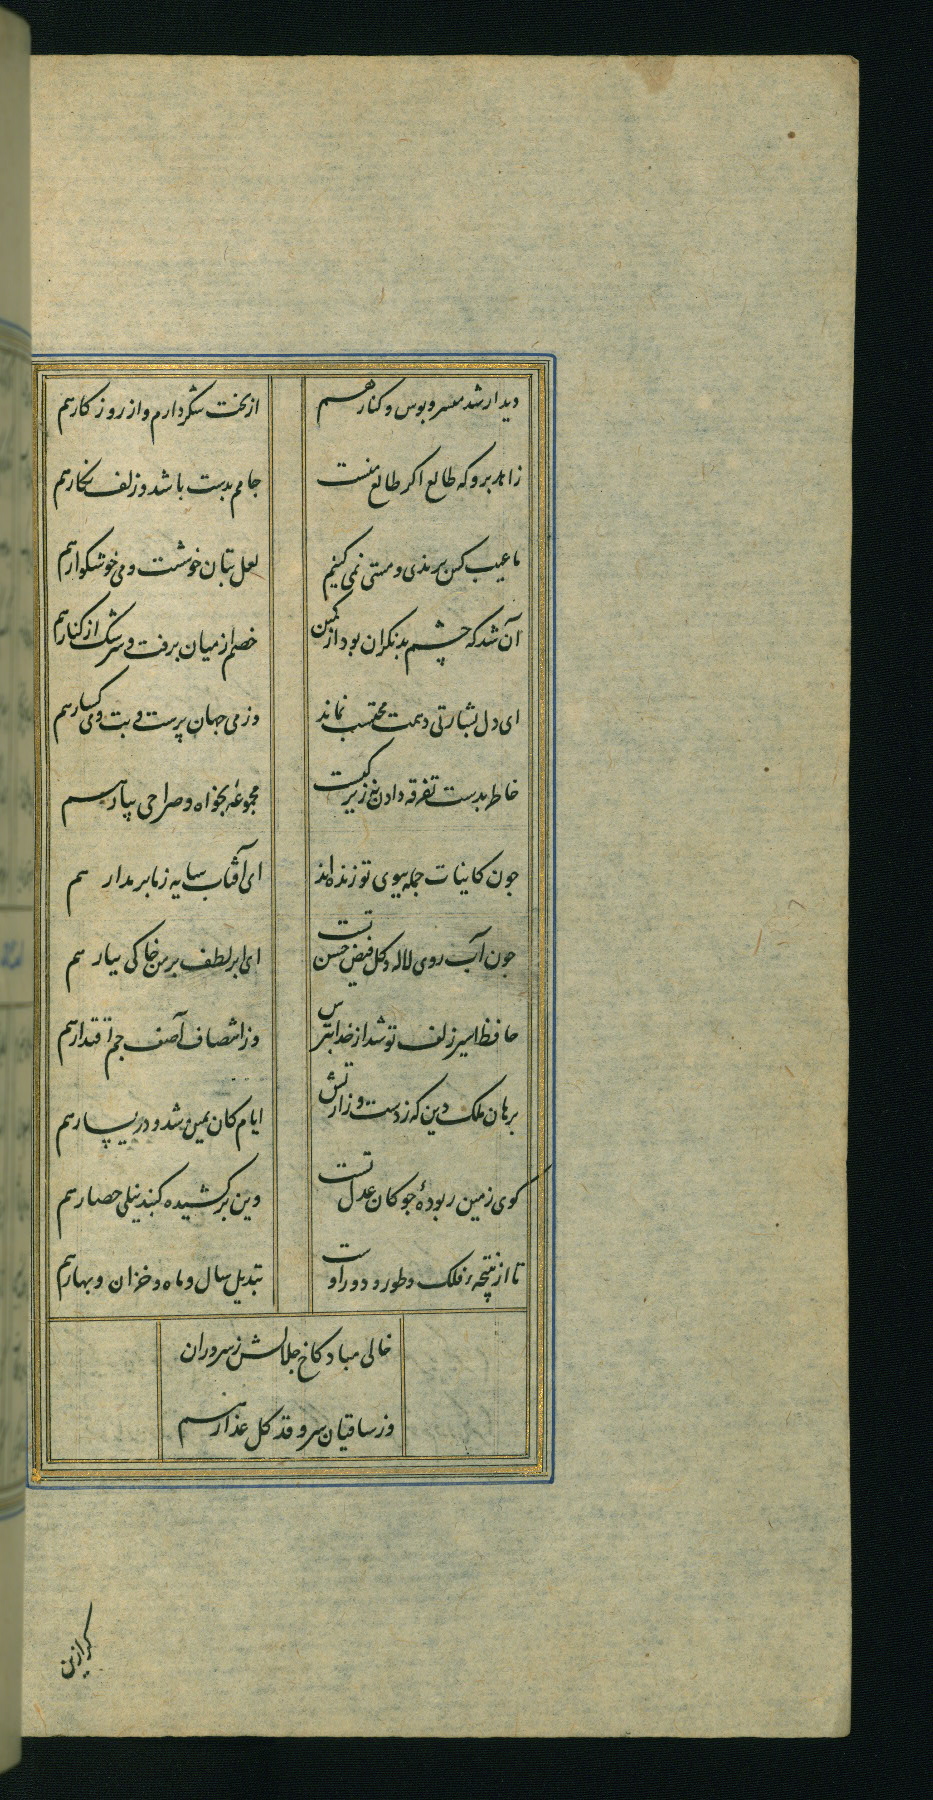 دیدار شد میسر و بوس و کنار هم
از بخت شکر دارم و از روزکار هم
زاهد برو که طالع اکر طالع منست
جامم بدست باشد و زلف نکار هم
ما عیب کس برندی و مستی نمی کنیم
لعل بتان خوشست و می خوشکوار هم
آن شد که چشم بد نکران بود از کمین
خصم از میان برفت و سرشک از کنار هم
ای دل بشارتی دهمت محتسب نماند
وز می جهان پرست و بت و می کسار هم
خاطر بدست تفرقه دادن نه زیرکیست
مجموعهٔ بخواه و صراحی بیار هم
چون کاینات جمله ببوی تو زنده اند
ای آفتاب سایه ز ما بر مدار هم
چون آب روی لاله و کل فیض حسن تست
ای ابر لطف بر من خاکی ببار هم
حافظ اسیر زلف تو شد از خدا بترس
وز انتصاف آصف جم اقتدار هم
برهان ملک و دین که ز دست وزارتش
ایام کان یمین شد و دریا یسار هم
کوی زمین ربودهٔ چوکان عدل تست
وین برکشیده کنبد نیلی حصار هم
تا از نتیجهٔ فلک و طور و دور اوست
تبدیل سال و ماه و خزان و بهار هم
خالی مباد کاخ جلالش ز سروران
وز ساقیان سرو قد کل عذار هم
کر ازین